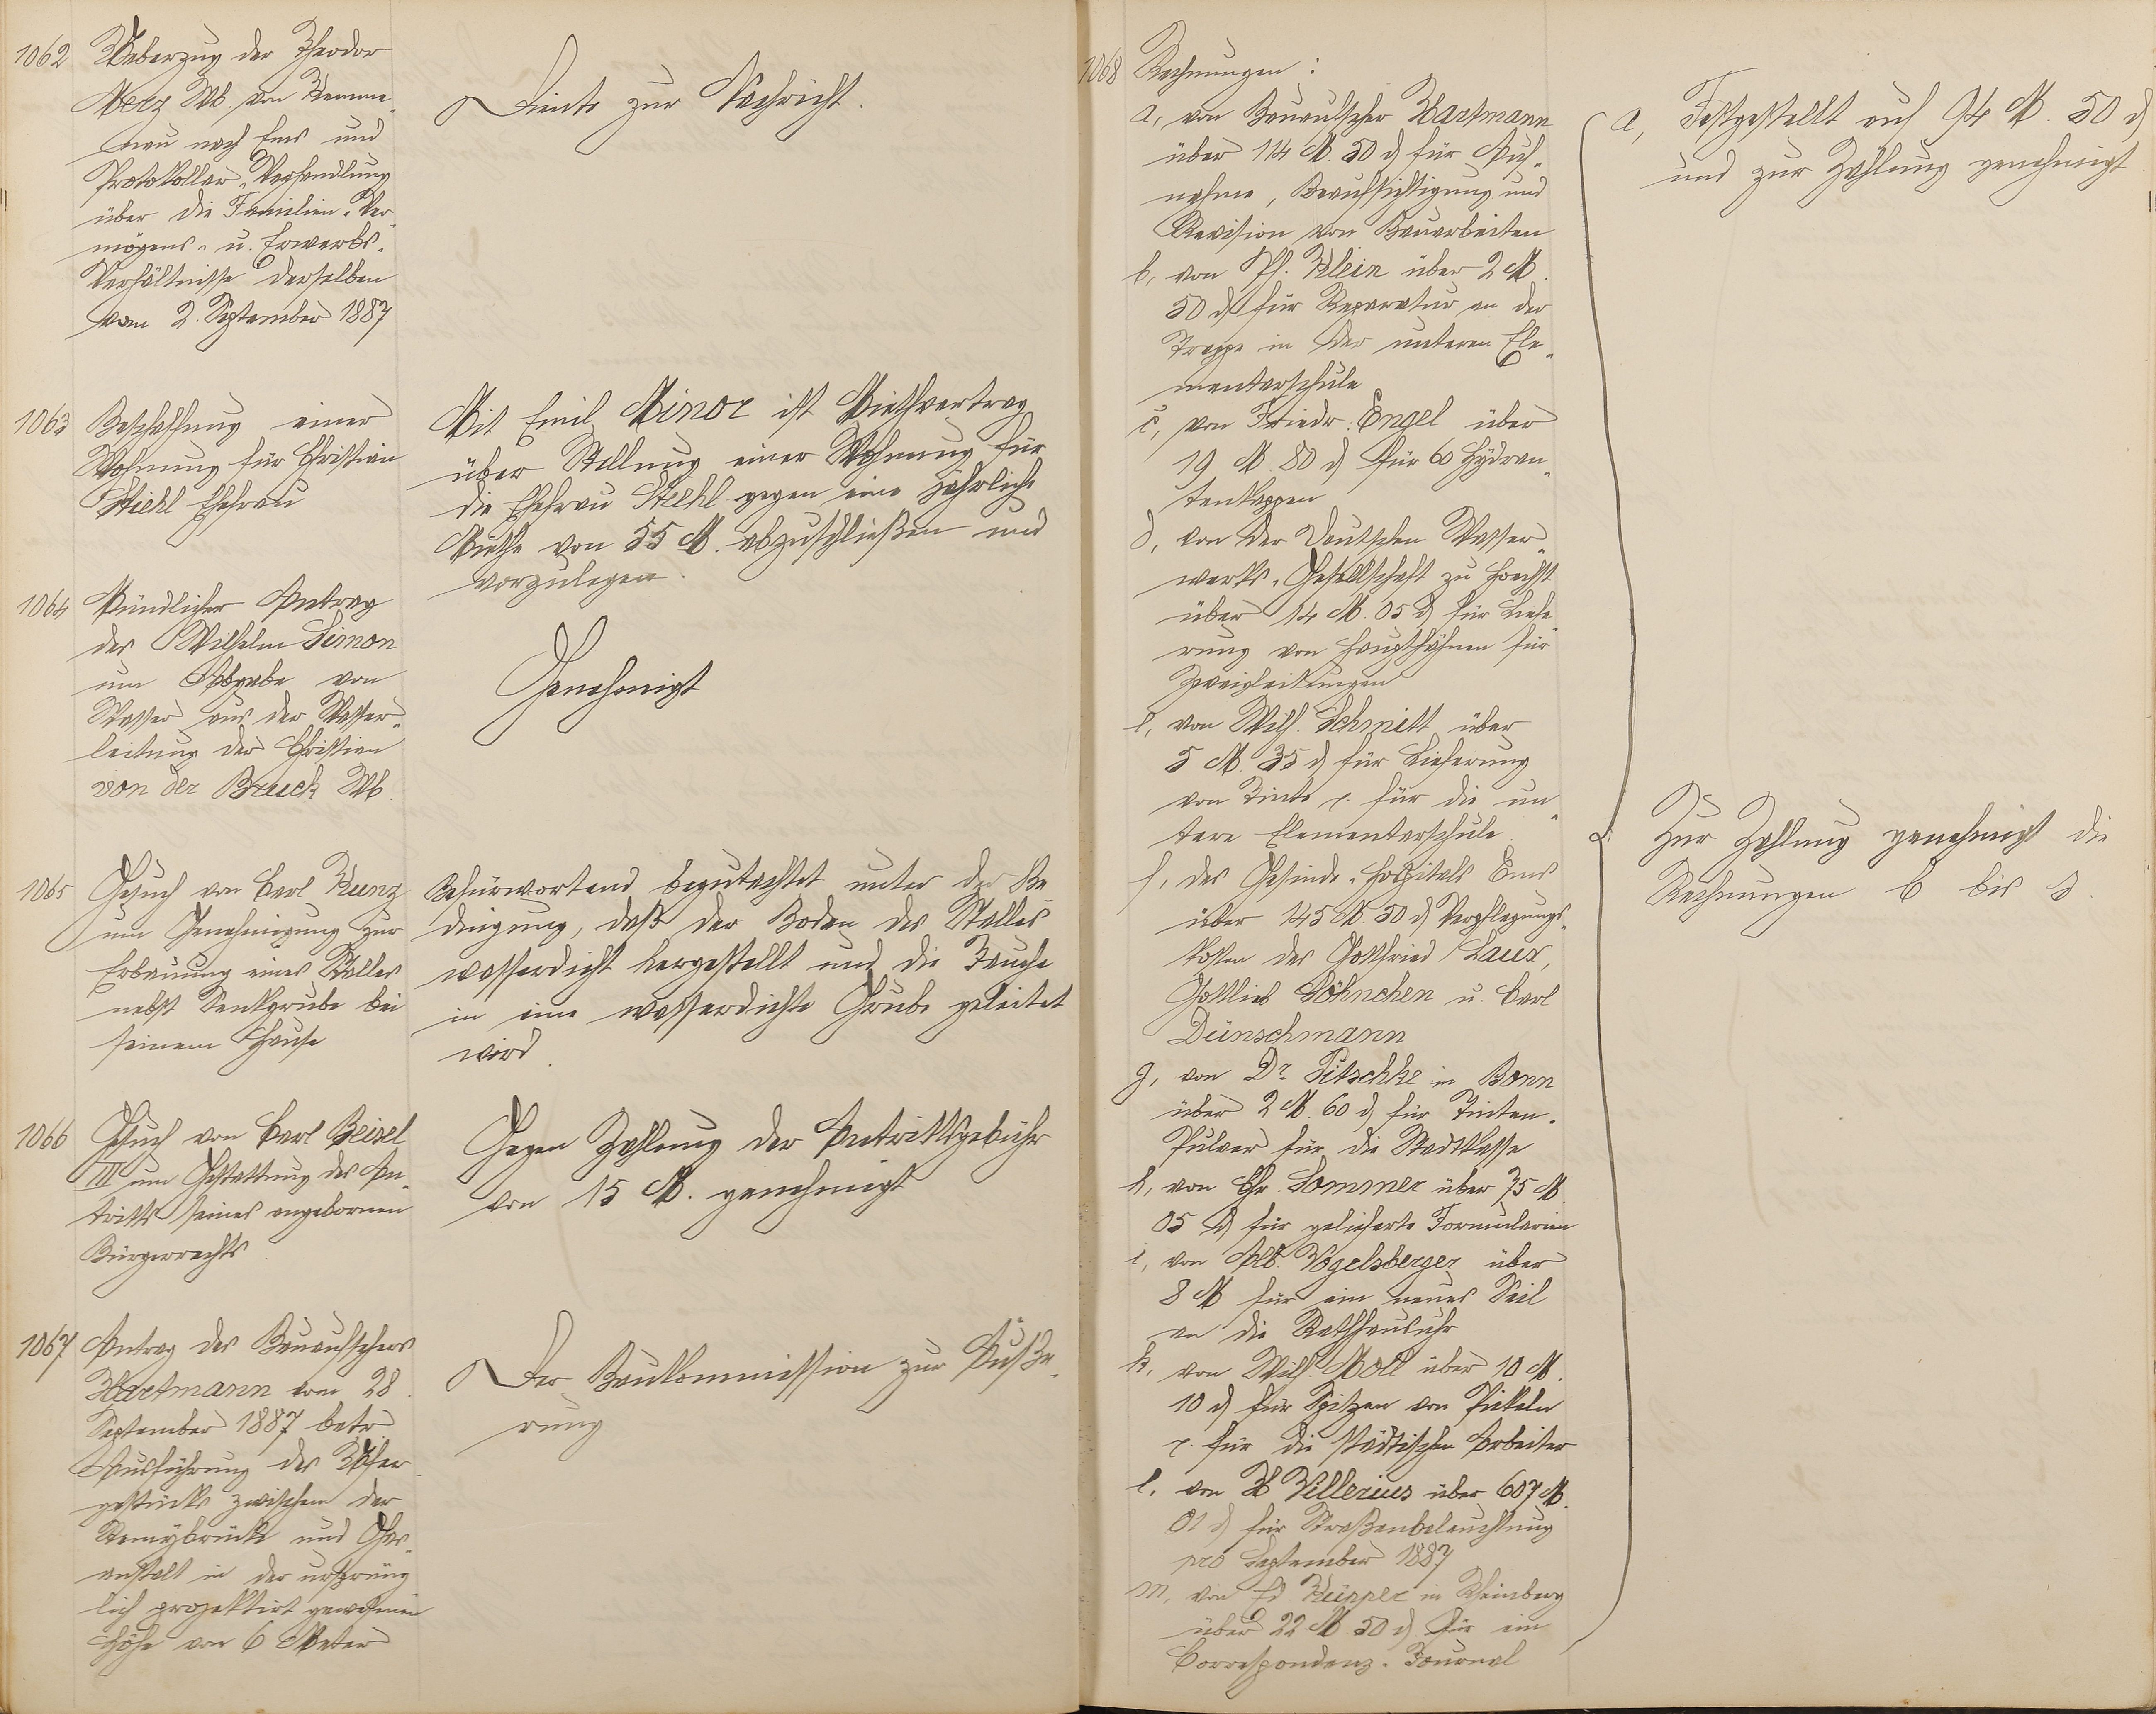 1062 Ueberzug der Theodor
Merz Wb. von Kemme-
nau nach Ems und
Protokollar-Verhandlung
über die Familien-Ver
mögens- u. Erwerbs-
Verhältnisse derselben
vom 2. September 1887
Diente zur Nachricht.
1063 Beschaffung einer
Wohnung für Christian
Stiehl Ehefrau
Mit Emil Minor ist Miethvertrag
über Stellung einer Wohnung für
die Ehefrau Stiehl gegen eine jährliche
Miethe von 55 M. abzuschließen und
vorzulegen.
1064 Mündlicher Antrag
des Wilhelm Simon
um Abgabe von
Wasser aus der Wasser-
leitung der Christian
von der Bruck Wb.
Genehmigt
1065 Gesuch von Carl Kunz
um Genehmigung zur
Erbauung eines Stalles
nebst Senkgrube bei
seinem Hause
Befürwortend begutachtet unter der Be-
dingung, daß der Boden des Stalles
wasserdicht hergestellt und die Jauche
in eine wasserdichte Grube geleitet
wird.
1066 Gesuch von Carl Beisel
III um Gestattung des An-
tritts seines angebornen
Bürgerrechts
Gegen Zahlung der Antrittsgebühr
von 15 M. genehmigt
1067 Antrag des Bauaufsehers
Hartmann vom 28.
September 1887 betr.
Ausführung des Ufer-
gestücks zwischen der
Remybrücke und Gas-
anstalt in der ursprüng
lich projektirt gewesenen
Höhe von 6 Meter
Der Baukommission zur Äuße-
rung
1068 Rechnungen:
a, von Bauaufseher Hartmann
über 114 M. 50 d für Auf-
nahme, Beaufsichtigung und
Revision von Bauarbeiten
b, von Ph. Klein über 2 M.
50 d für Reparatur an der
Treppe in der unteren Ele-
mentarschule
c, von Friedr. Engel über
19 M. 80 d für 60 Hydran-
tenkappen
d, von der Deutschen Wasser-
werks-Gesellschaft zu Hoechst
über 14 M. 05 d für Liefe-
rung von Haupthähnen für
Zweigleitungen
e, von Wilh. Schmitt über
5 M. 35 d für Lieferung
von Tinte p. für die un-
tere Elementarschule.
f, des Gesinde-Hospitals Ems
über 145 M. 50 d Verpflegungs-
kosten des Gottfried Laux,
Gottlieb Söhnchen u. Carl
Dünschmann
g, von Dr. Pitschke in Bonn
über 2 M. 60 d für Tinten-
Pulver für die Stadtkasse
h, von Chr. Sommer über 75 M.
05 d für gelieferte Formularien
i, von Alb. Vogelsberger über
8 M für ein neues Seil
an die Rathhausuhr
k, von Wilh. Moll über 10 M.
10 d für Spitzen von Pickeln
p. für die städtischen Arbeiter
l, von H Villerius über 607 M.
01 d für Straßenbeleuchtung
pro September 1887
m, von Ed Küpper in Rheinberg
über 22 M 50 d für ein
Correspondenz-Journal
a, Festgestellt auf 94 M. 50 d
und zur Zahlung genehmigt
Zur Zahlung genehmigt die
Rechnungen b bis